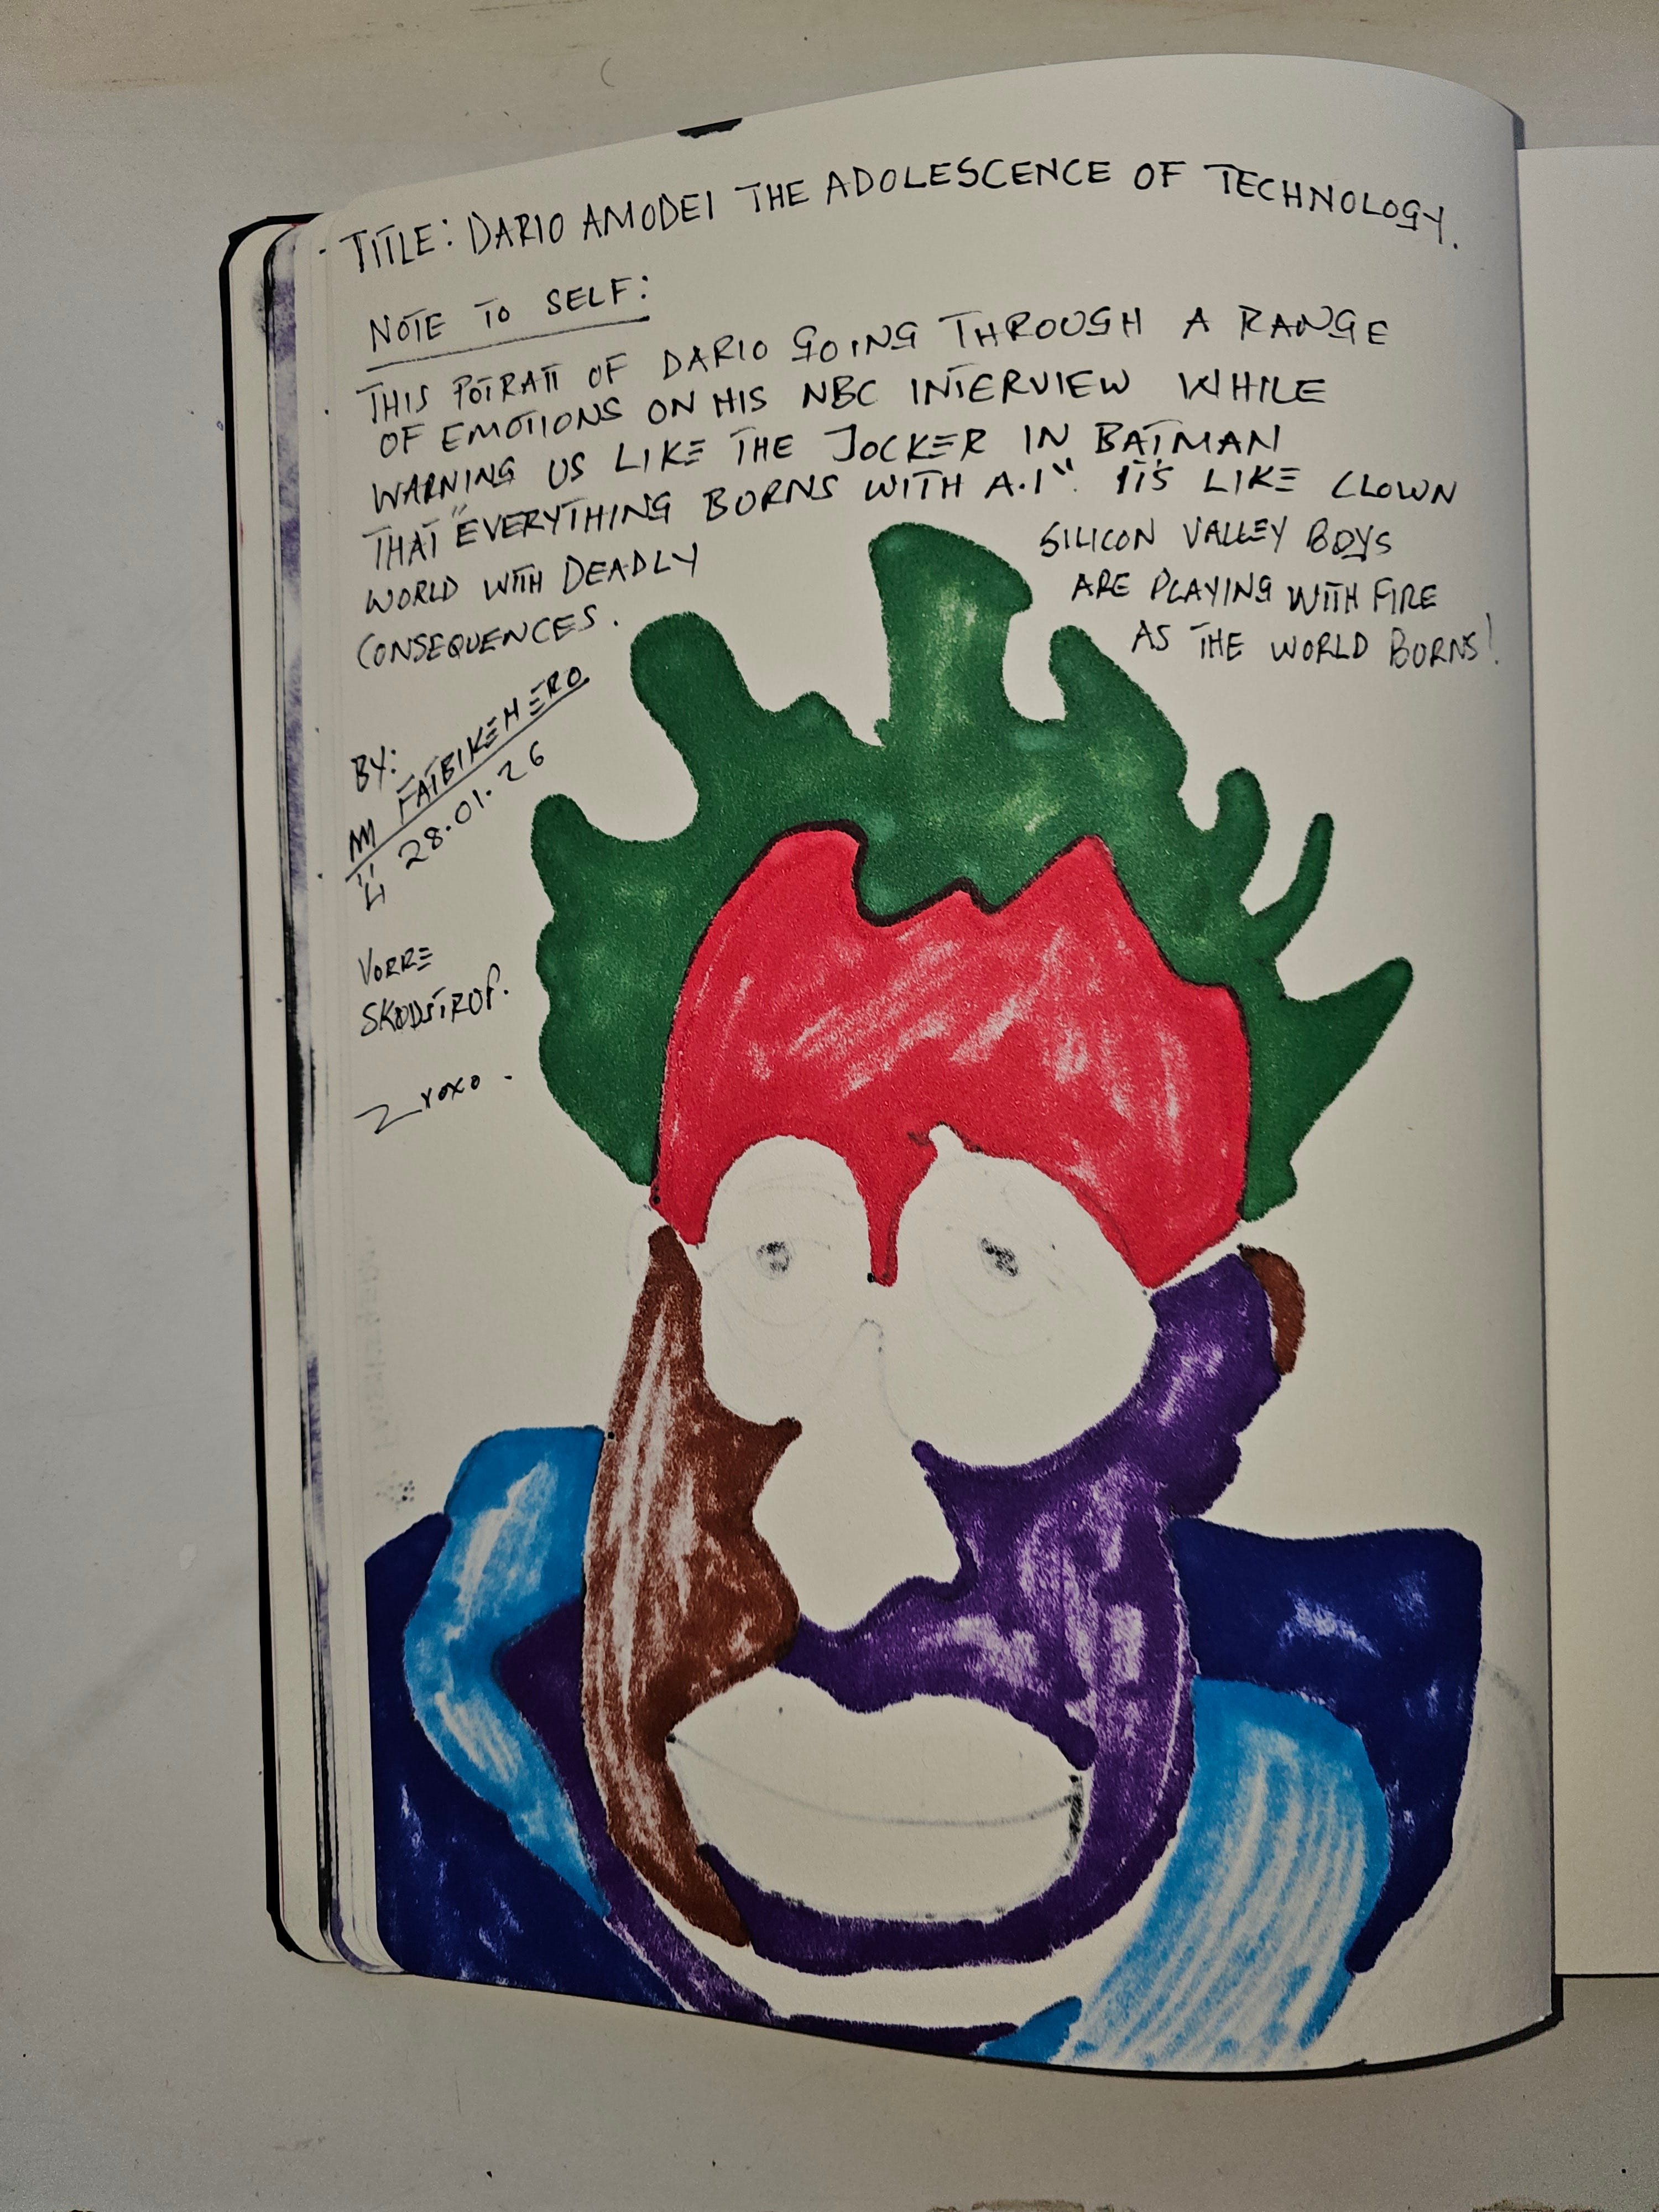 TITLE: DARIO AMODEI THE ADOLESCENCE OF TECHNOLOGY.
NOTE TO SELF:
THIS POTRATT OF DARIO GOING THROUGH A RANGE
OF EMOTIONS ON HIS NBC INTERVIEW WHILE
WARNING US LIKE THE JOCKER IN BATMAN
THAT "EVERYTHING BORNS WITH A.I". IT'S LIKE CLOWN
WORLD WITH DEADLY
CONSEQUENCES.
SILICON VALLEY BOYS
ARE PLAYING WITH FIRE
AS THE WORLD BORNS!
BY:
FATBIKEHERO
28.01.26
VORRE
SKODSTROP.